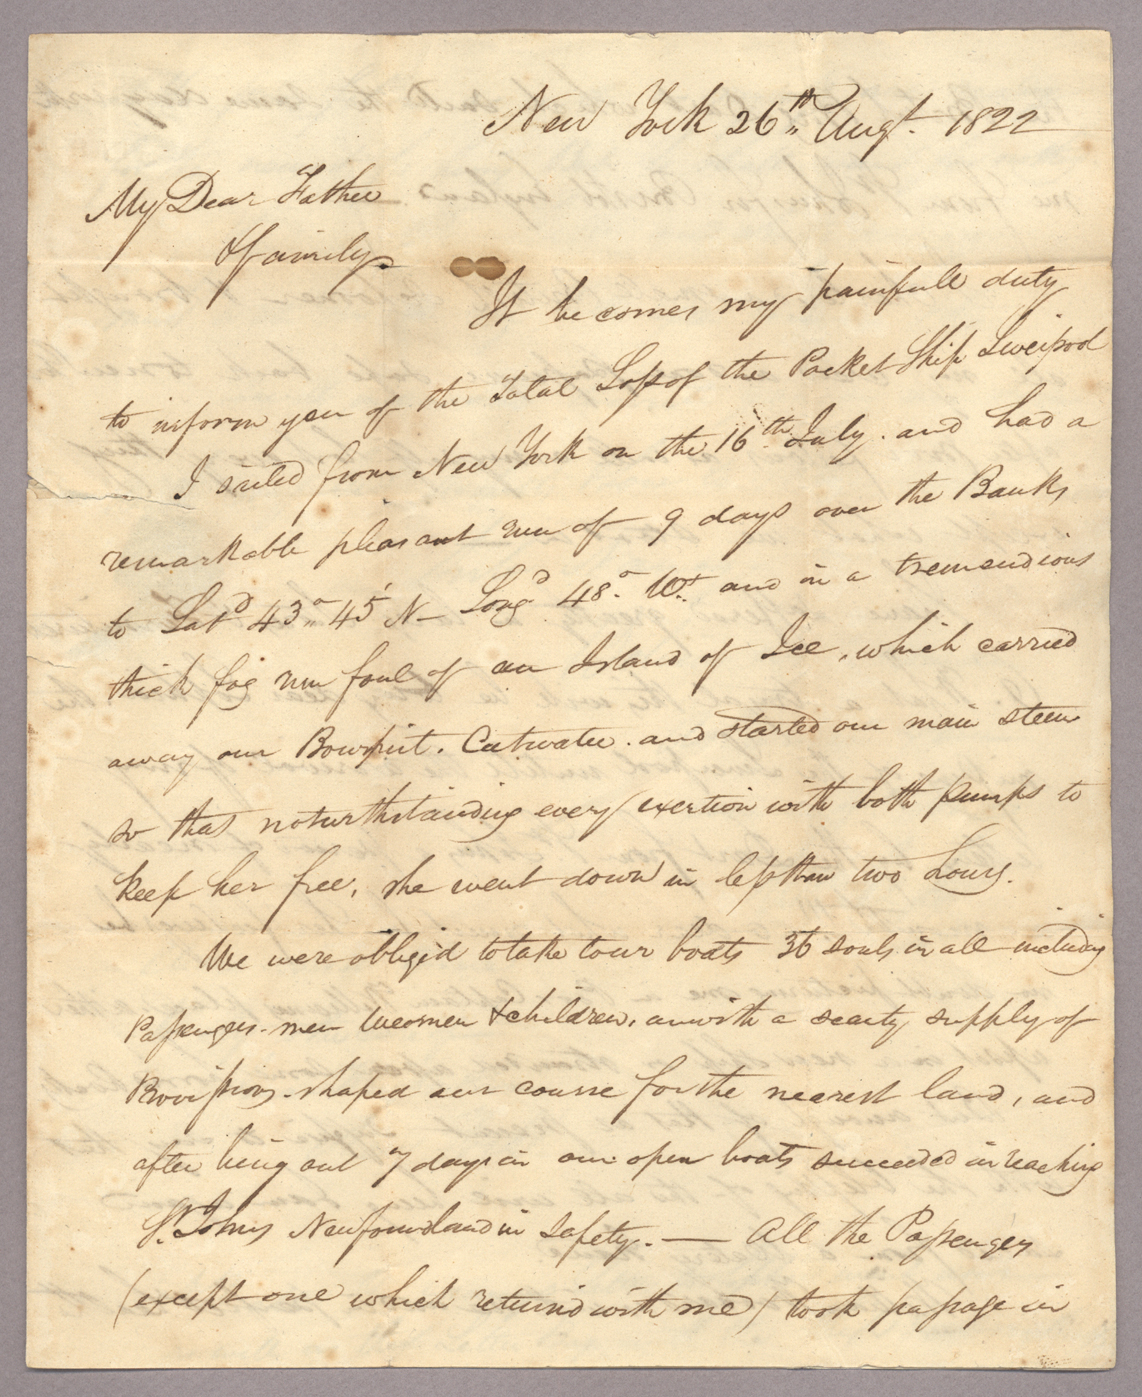 New York 26th Augt. 1822
My Dear Father
& family
It becomes my painfull duty
to inform you of the Total Loss of the Packet Ship Liverpool
I sailed from New York on the 16th July. and had a
remarkable pleasant run of 9 days over the Banks
to Latd 43° 45' N - Longd 48° Wt and in a tremendious
thick fog run foul of an Island of Ice, which carried
away our Bowsprit. Cutwater. and started our main stem
so that noturthstanding every exertion with both pumps to
keep her free, she went down in less than two hours.
We were obligid to take to our boats 36 souls in all including
Passengers - men weomen & children, an with a scanty supply of
Provissions - shaped our course for the nearest land, and
after being out 7 days in our open boats succeeded in reaching
St. Johns Newfoundland in safety. — All the Passengers
(except one which returnid with me) took passage in